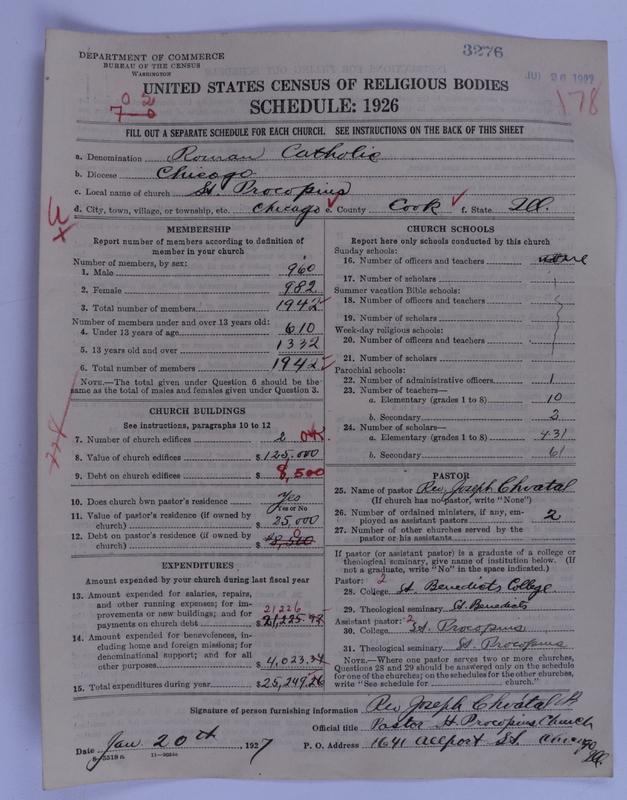 3276
DEPARTMENT OF COMMERCE
BUREAU OF THE CENSUS
WASHINGTON
UNITED STATES CENSUS OF RELIGIOUS BODIES
SCHEDULE: 1926
178
FILL OUT A SEPARATE SCHEDULE FOR EACH CHURCH. SEE INSTRUCTIONS ON THE BACK OF THIS SHEET
a. Denomination Roman Catholic
b. Diocese Chicago
c. Local name of church St. Procopius
d. City, town, village, or township, etc. Chicago e. County Cook f. State Ill.
MEMBERSHIP
Report number of members according to definition of
member in your church
Number of members, by sex:
1. Male 960
2. Female 982
3. Total number of members 1942
Number of members under and over 13 years old:
4. Under 13 years of age 610
5. 13 years old and over 1332
6. Total number of members 1942
NOTE.—The total given under Question 6 should be the
same as the total of males and females given under Question 3.
CHURCH BUILDINGS
See instructions, paragraphs 10 to 12
7. Number of church edifices 2
8. Value of church edifices $125,000
9. Debt on church edifices $8,500
10. Does church own pastor's residence Yes
Yes or No
11. Value of pastor's residence (if owned by
church) $25,000
12. Debt on pastor's residence (if owned by
church) $8,500 0
EXPENDITURES
Amount expended by your church during last fiscal year
13. Amount expended for salaries, repairs,
and other running expenses; for im-
provements or new buildings; and for
payments on church debt $21,225.92
21226
14. Amount expended for benevolences, in-
cluding home and foreign missions; for
denominational support; and for all
other purposes $4,023.34
15. Total expenditures during year $25,249.26
CHURCH SCHOOLS
Report here only schools conducted by this church
Sunday schools:
16. Number of officers and teachers none
17. Number of scholars
Summer vacation Bible schools:
18. Number of officers and teachers
19. Number of scholars
Week-day religious schools:
20. Number of officers and teachers
21. Number of scholars
Parochial schools:
22. Number of administrative officers 1
23. Number of teachers—
a. Elementary (grades 1 to 8) 10
b. Secondary 3
24. Number of scholars—
a. Elementary (grades 1 to 8) 431
b. Secondary 61
PASTOR
25. Name of pastor Rev. Joseph Chvatal
(If church has no pastor, write "None")
26. Number of ordained ministers, if any, em-
ployed as assistant pastors 2
27. Number of other churches served by the
pastor or his assistants
If pastor (or assistant pastor) is a graduate of a college or
theological seminary, give name of institution below. (If
not a graduate, write "No" in the space indicated.)
Pastor: 2
28. College St. Benedicts College
29. Theological seminary St. Benedicts
Assistant pastor: 2
30. College St. Procopius
31. Theological seminary St. Procopius
NOTE.—Where one pastor serves two or more churches,
Questions 28 and 29 should be answered only on the schedule
for one of the churches; on the schedules for the other churches,
write "See schedule for church."
Signature of person furnishing information Rev Joseph Chvatal
Official title Pastor St Procopius Church
Date Jan 20th, 1927 P. O. Address 1641 Allport St. Chicago Ill.
8-5518a